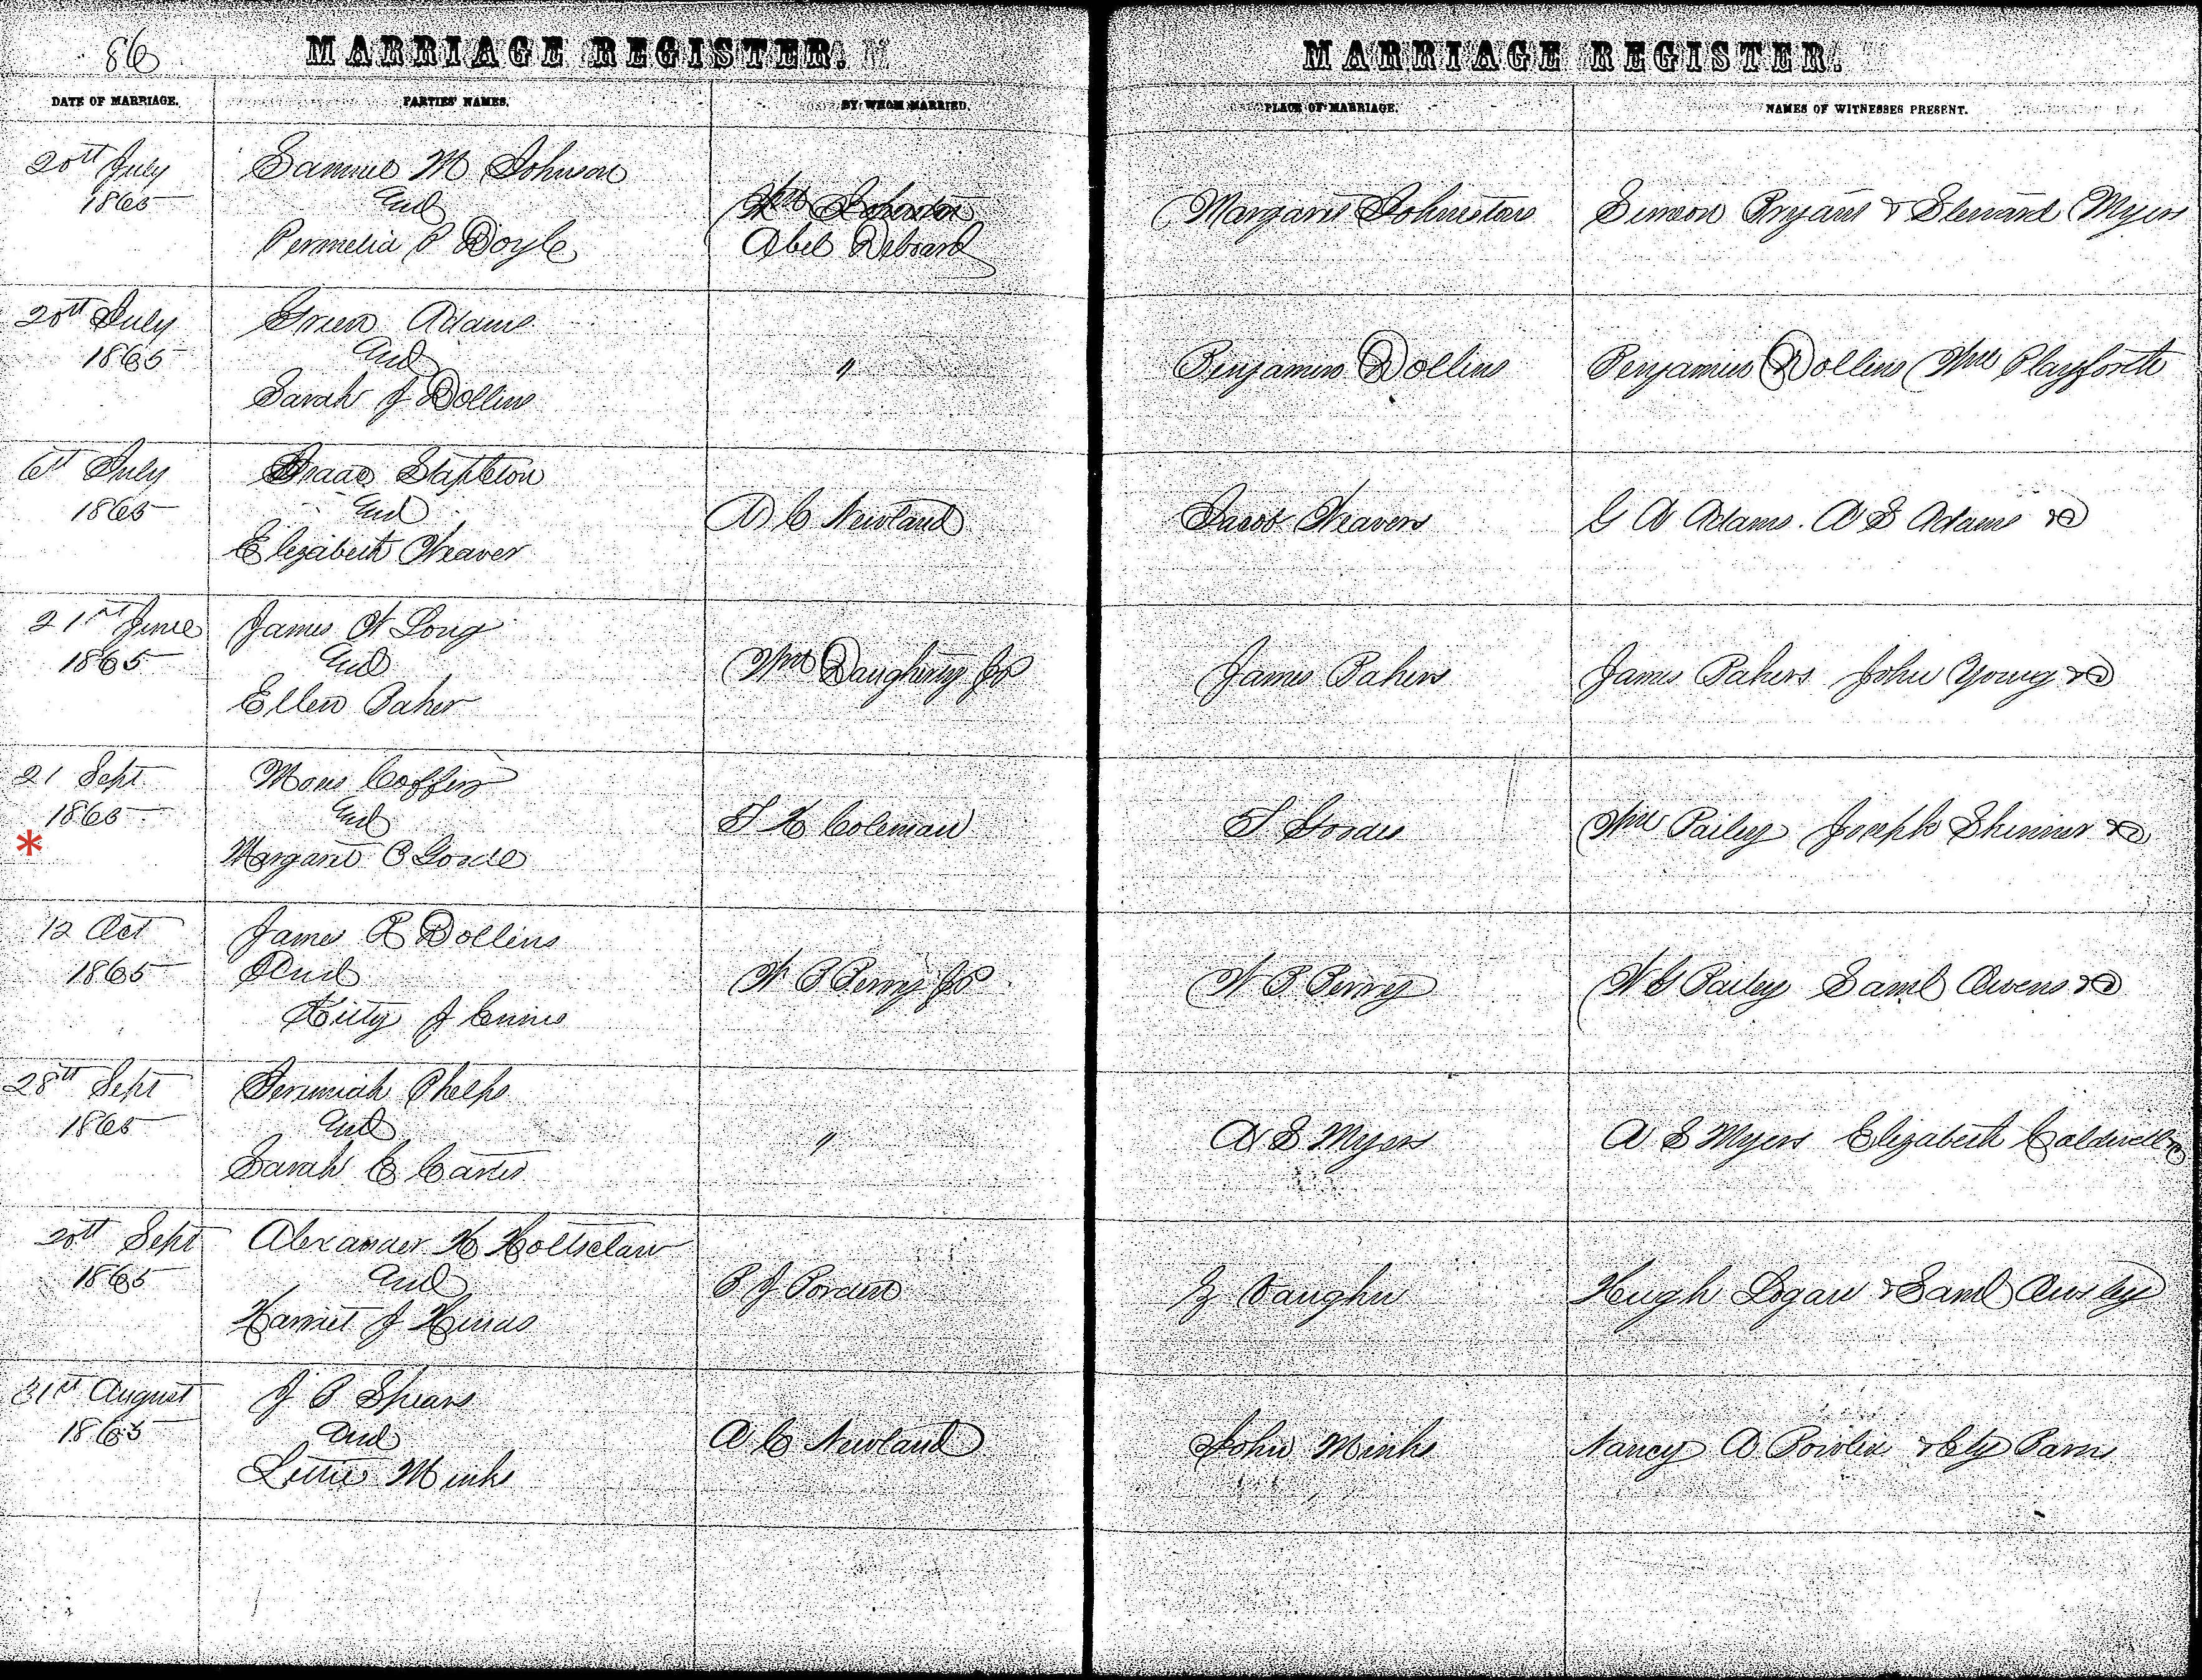 86
MARRIAGE REGISTER.
DATE OF MARRIAGE. PARTIES' NAMES. BY WHOM MARRIED.
20th July 1865
Samuel M Johnson
And
Permelia P Boyle
Abel Deboard
20th July 1865
Green Adams
And
Sarah J Dollins
"
6th July 1865
Isaac Stapleton
And
Elizabeth Weaver
A C Newland
21st June 1865
James W Long
And
Ellen Baker
Wm Daugherty JP
21 Sept 1865
*
Moses Coffey
And
Margaret
T H Coleman
12 Oct 1865
James R Dollins
And
Kitty J
W B Perry JP
28th Sept 1865
Jeremiah Phelps
And
Sarah E Carter
"
20th Sept 1865
Alexander H Holtsclaw
And
Harriet J
B J Borden
31st August 1865
J B Spears
And
Lettie Minks
A C Newland
MARRIAGE REGISTER.
PLACE OF MARRIAGE. NAMES OF WITNESSES PRESENT.
Margaret Johnestons Simeon Bryant & Steward Myers
Benjamin Dollins Benjamin Dollins Wm Playforth
Jacob Weavers G A Adams. A S Adams &c
James Bakers James Bakers John Young &c
Wm Bailey Joseph Skinner &c
W B Perry W G Bailey Saml Owens &c
A S Myers A S Myers Elizabeth Caldwell &c
Z Vaughn Hugh Logan & Saml Owsley
John Minks Nancy A